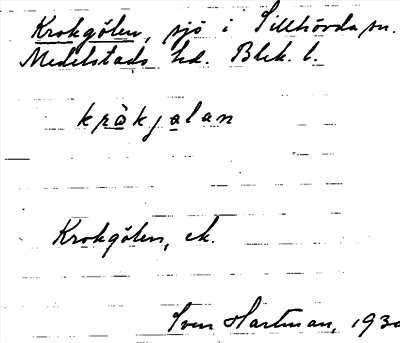 Krokgölen, sjö i Sillhövda sn.
Medelstads hd. Blek. l.
kråkjalan
Krokgölen, ek.
Sven Hartman, 193